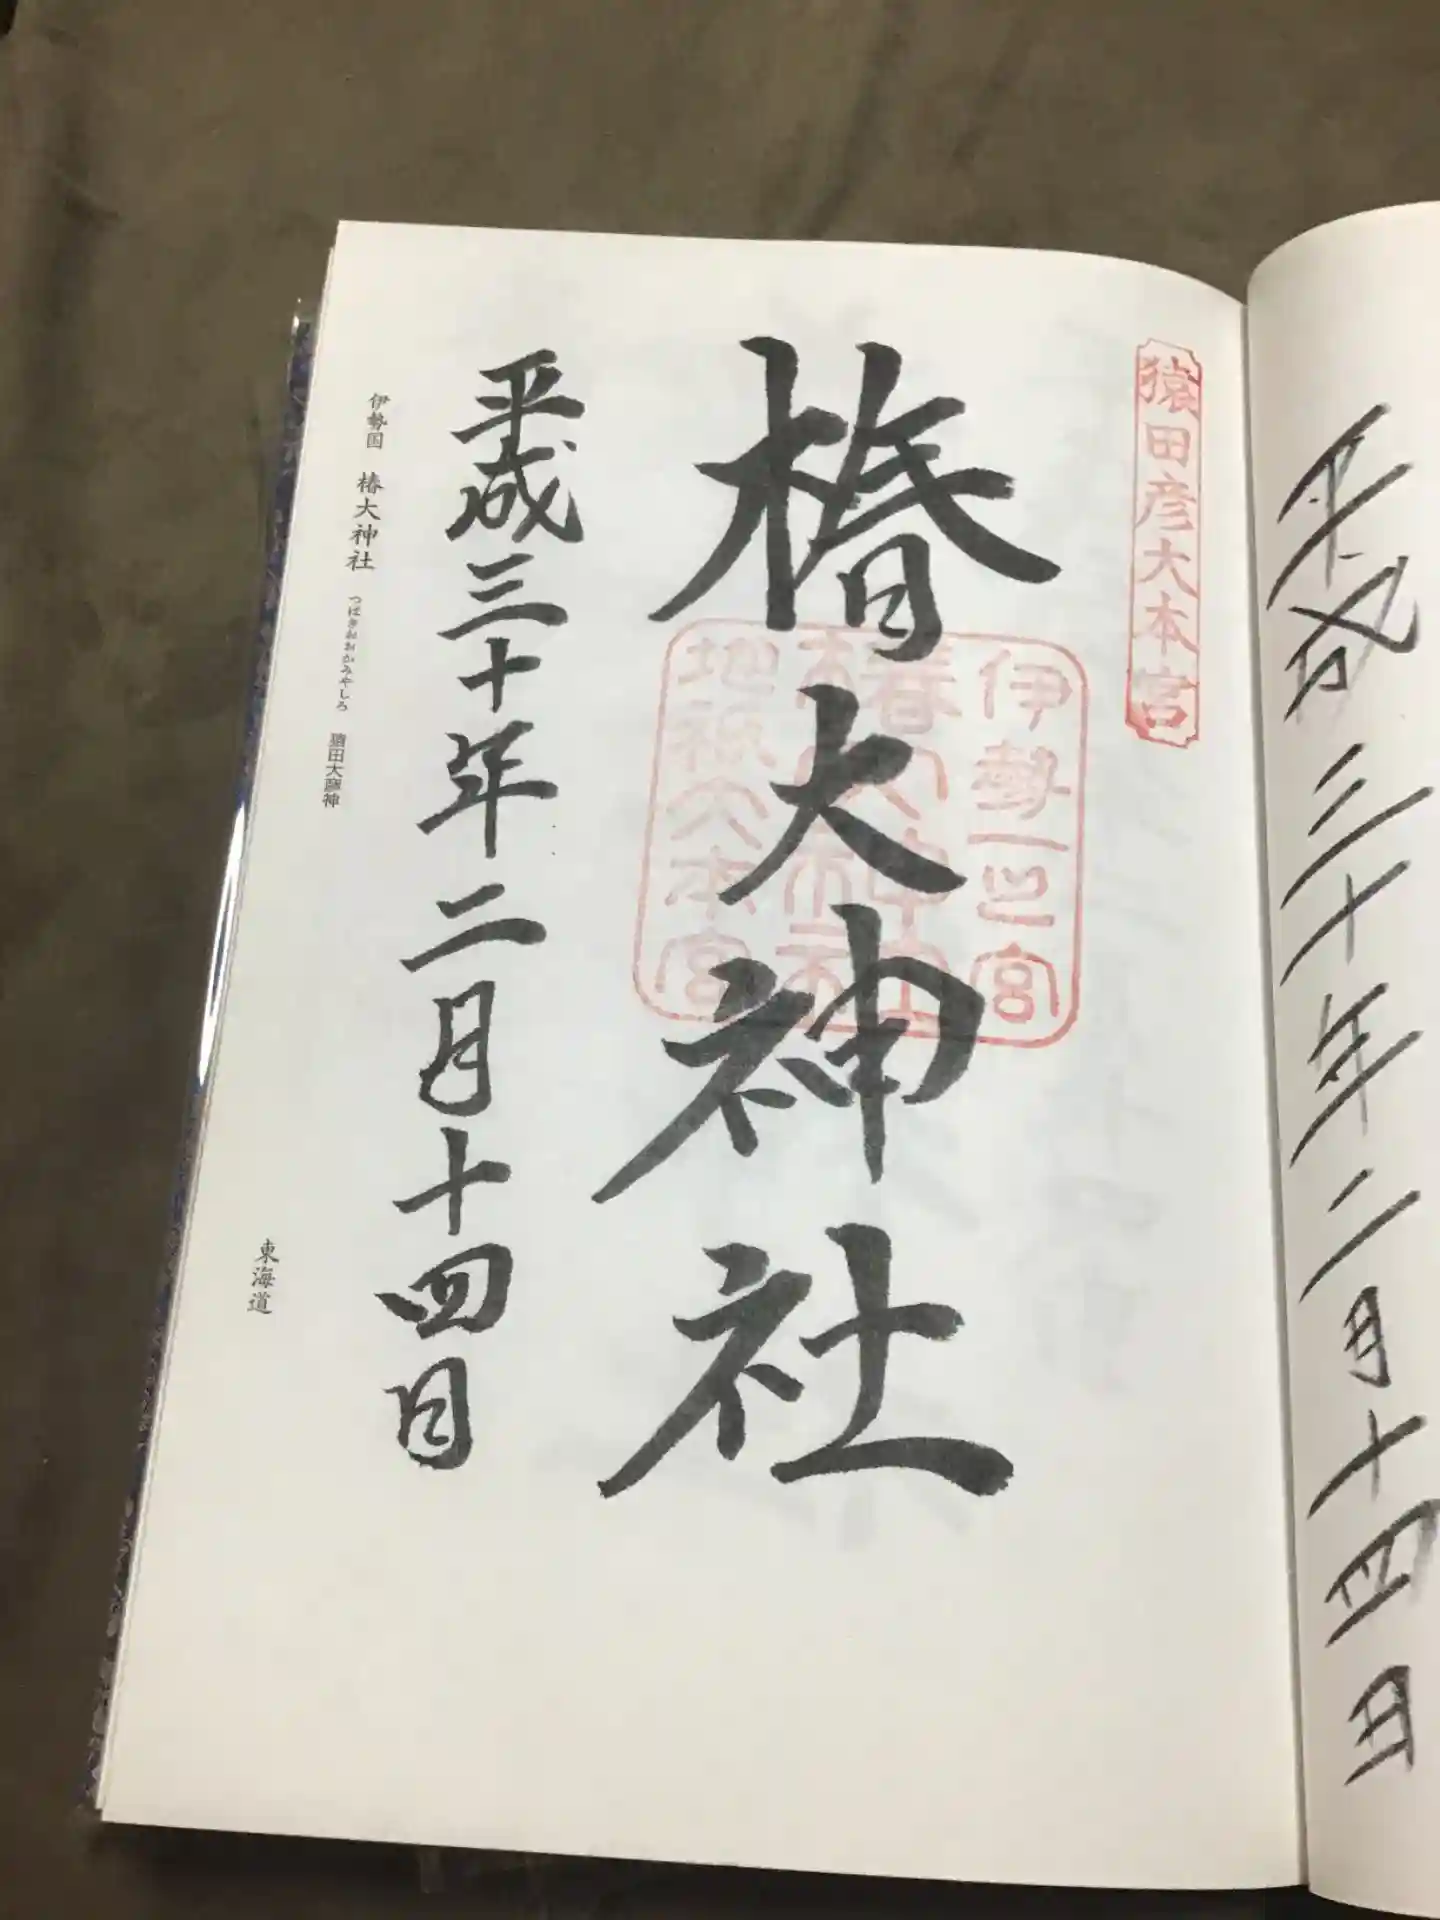 平成三十年二月十四日
猿田彦大本宮
伊勢一之宮
椿大神社
地祇大本宮
椿大神社
平成三十年二月十四日
伊勢国 椿大神社 つばきおおかみやしろ 猿田大彦神
東海道